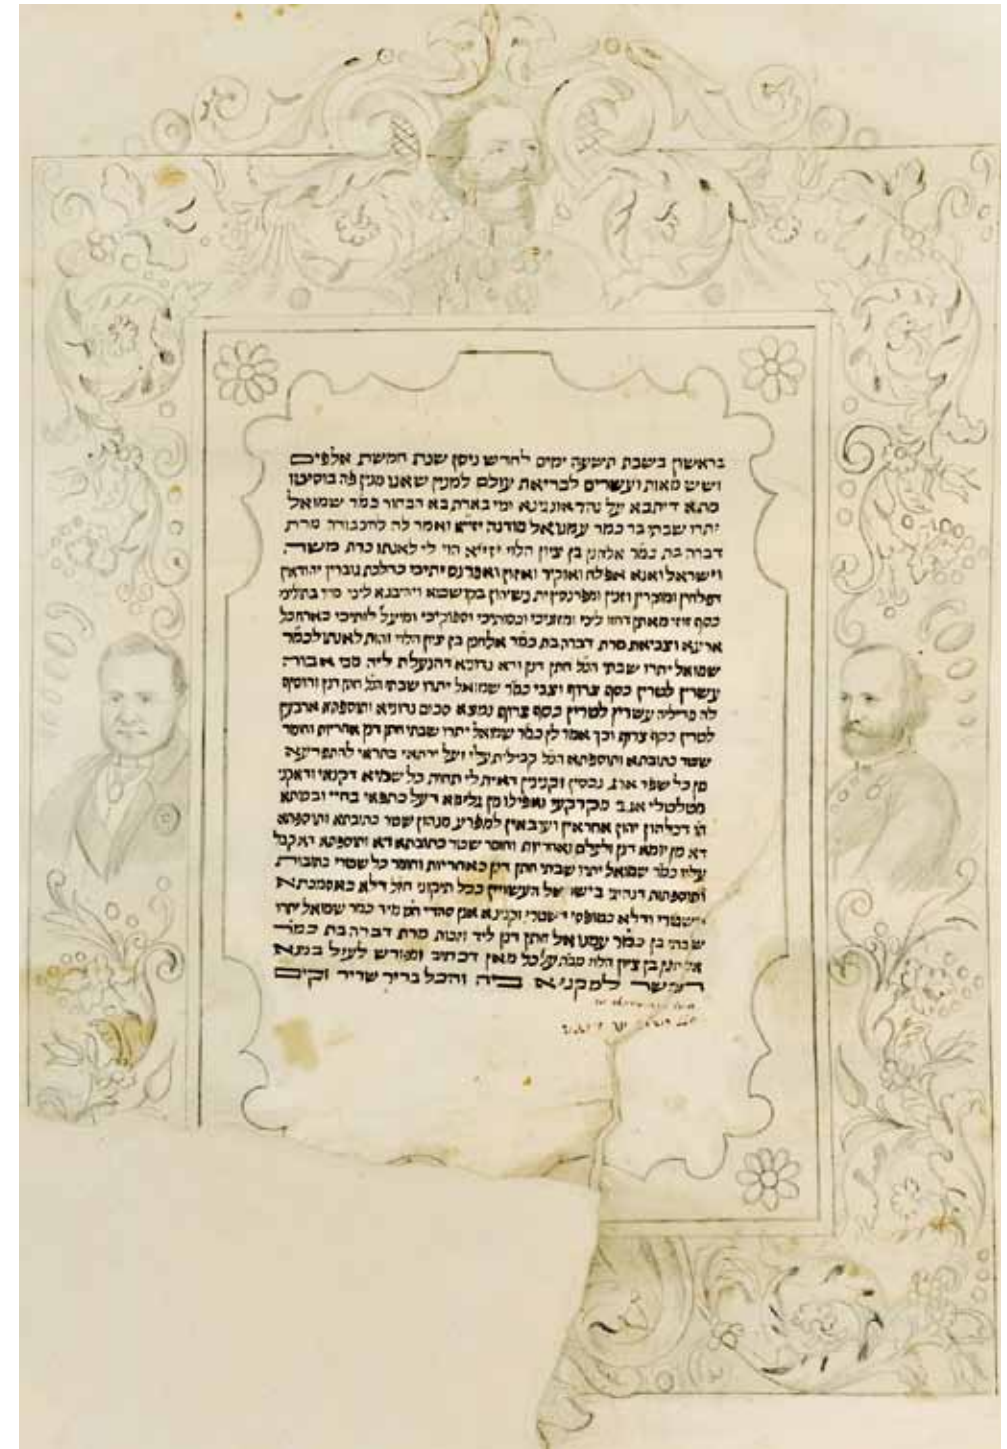 בראשון בשבת תשעה ימים לחדש ניסן שנת חמשת אלפים
ושש מאות ועשרים לבריאת עולם למנין שאנו מנין פה בוסיטו
מתא דיתבא על נהר אונגינא ומי בארת בא הבחור כמר שמואל
יתרו שבתי בר כמר עמנואל מודנה יזייא ואמר לה להכבודה מרת
דברה בת כמר אלחנן בן ציון הלוי יזייא הוי לי לאנתו כדת משה
וישראל ואנא אפלח ואוקיר ואיזון ואפרנס יתיכי כהלכת גוברין יהודאין
דפלחין ומוקרין וזנין ומפרנסין ית נשיהון בקושטא ויהיבנא ליכי מהר בתוליכי
כסף זוזי מאתן דחזו ליכי ומזוניכי וכסותיכי וספוקיכי ומיעל לותיכי כארח כל
ארעא וצביאת מרת דברה בת כמר אלחנן בן ציון הלוי והות לאנתו לכמר
שמואל יתרו שבתי הנל חתן דנן ודא נדוניא דהנעלת ליה מבי אבוה
עשרין לטרין כסף צרוף וצבי כמר שמואל יתרו שבתי הנל חתן דנן והוסיף
לה מדיליה עשרין לטרין כסף צרוף נמצא סכום נדוניא ותוספתא ארבעין
לטרין כסף צרוף וכך אמר לן כמר שמואל יתרו שבתי חתן דנן אחריות וחומר
שטר כתובתא ותוספתא הנל קבילית עלי ועל ירתאי בתראי להתפרעא
מן כל שפר ארג נכסין וקנינין דאית לי תחות כל שמיא דקנאי ודאקני
מטלטלי אגב מקרקעי ואפילו מן גלימא דעל כתפאי בחיי ובמותא
הו דכלהון יהון אחראין וערבאין למפרע מנהון שטר כתובתא ותוספתא
דא מן יומא דנן ולעלם ואחריות וחומר שטר כתובתא דא ותוספתא דא קבל
עליו כמר שמואל יתרו שבתי חתן דנן כאחריות וחומר כל שטרי כתובות
ותוספתות דנהיגי בישראל העשויין ככל תיקוני חזל דלא כאסמכתא
דשטרי ודלא כטופסי דשטרי וקנינא אנן סהדי חמ מיד כמר שמואל יתרו
שבתי בן כמר עמנואל חתן דנן ליד וזכות מרת דברה בת כמר
אלחנן בן ציון הלוי מבת על כל מאן דכתיב ומפורש לעיל במנא
דכשר למקניא ביה והכל בריר שריר וקים